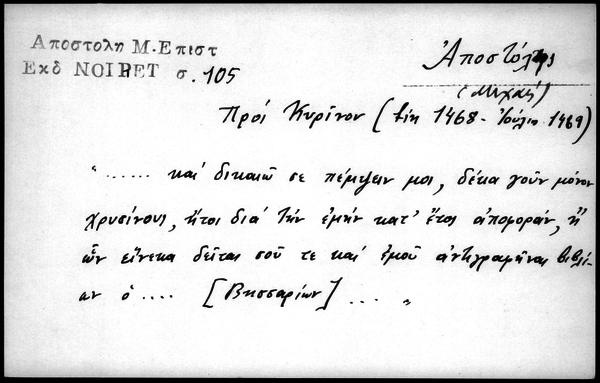 Αποστολη Μ. Επιστ
Εκδ NOIRET σ. 105
Ἀποστόλης
(Μιχαήλ)
Πρός Κυρῖνον ( 1468 - Ἰούλιο 1469)
" ...... καί δικαιῶ σε πέμψειν μοι, δέκα γοῦν μόνον
χρυσίνους, ἤτοι διά τήν ἐμήν κατ' ἔτος ἀποφοράν, ἤ
ὧν εἵνεκα δεῖται σοῦ τε καί ἐμοῦ ἀντιγραφῆναι βιβλί-
ων ὁ .... [Βησσαρίων] ... "